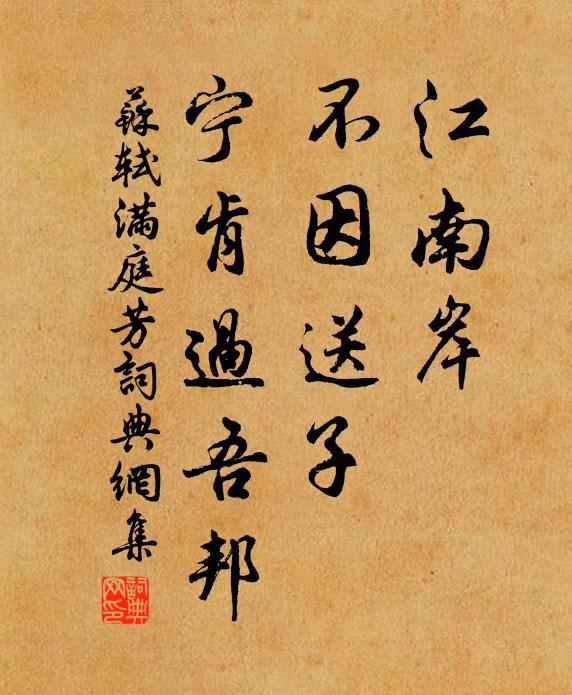 江南岸
不因送子
宁肯過吾邦
蘇軾滿庭芳詞典網集
詞典
网印